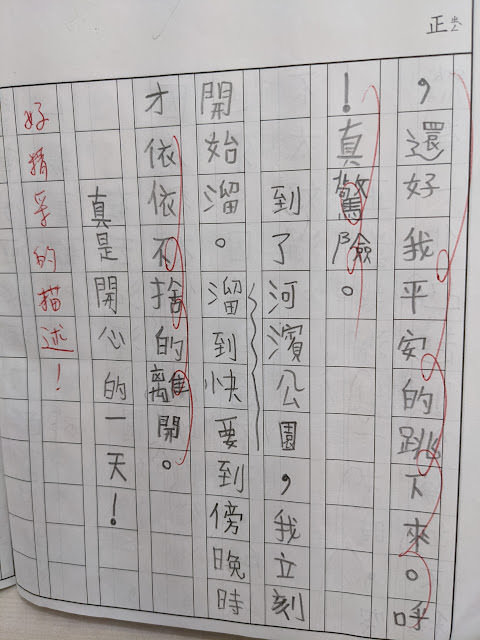 ，還好我平安的跳下來。呼
！真驚險。
到了河濱公園，我立刻
開始溜。溜到快要到傍晚時
才依依不捨的離開。
真是開心的一天！
好精采的描述！